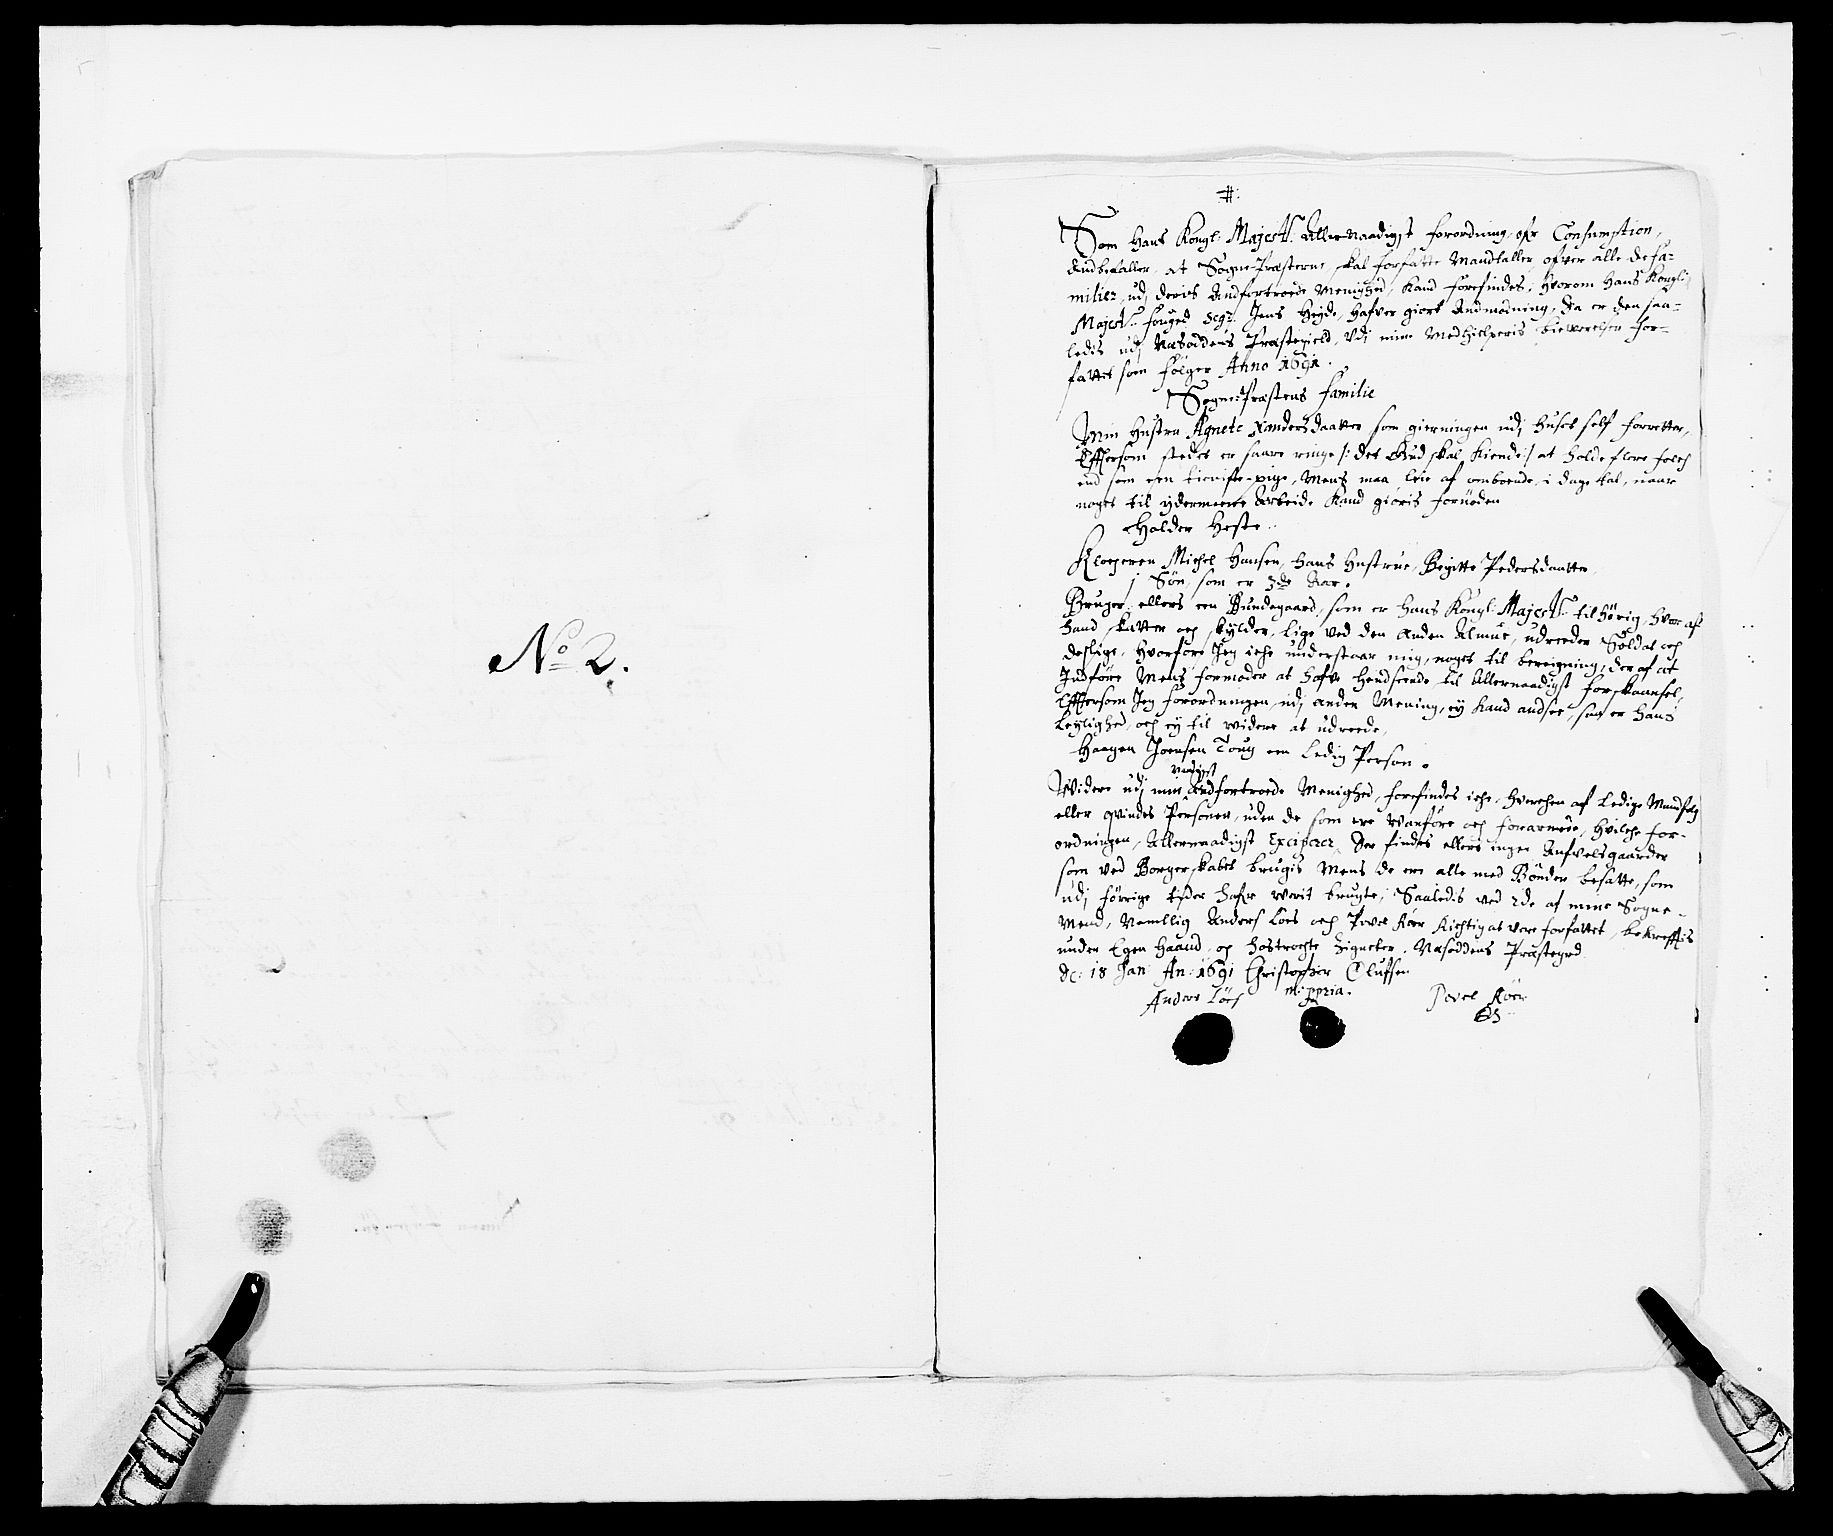 No 2.
#:
Som Hans Kongl: Majestt. Allernaadigst forordning ofr Consumption,
Andbefaller, at Sogne-Præsterne skal forfatte Mandtaller ofver alle de fa-
milier, udj deris Andfortroede Menighed, kand forefindes, hvorom Hans Kongl:
Majestt. fouged Segr. Jens Heyde, hafver giort Andmodning, Da er den saa-
ledis udj Næsoddens Præstegield, Vdj mine Medhielperis bieverelse for-
fattet som følger Anno 1691.
Sogne-Præstens Familie
Min Hustru Agnete Xandersdaatter som gierningen udj huset self forretter,
Effersom stedet er saare ringe /: det Gud skal kiende :/ at holde flere folch
end som een tieniste-pige, Mens maa leie af omboende, i dage tal, naar
noget til ydermeere Arbeide kand giøris fornøden
Holder Heste..
Klocheren Michel Hansen, hans Hustrue, Birgitte Pedersdaatter,
j Søn, som er 3de Aar.
Bruger ellers een Bundegaard, som er Hans Kongl: Majestt: tilhørig, hvor af
hand skatter och skylder, lige ved den anden Almue, udreeder Soldat och
deslige, hvorfore Jeg iche understaar mig, noget til bereigning, der af at
Indføre Mens formoder at hafve hendseende til Allernaadigst forskaansel,
Effersom Jeg forordningen, udj anden Mening, ey kand andsee, saa er hans
Leylighed, och ey til videre at udreede,
Haagen Joensen Toug een Ledig Person.
vædigst
Widere udj min Andfortroede Menighed, forefindes iche, hverchen af Ledige Mandfolch
eller qvindes Personer, uden de som ere Vanføre och forarmede, hvilche for-
ordningen, Allernaadigst Exciperer, Der findes ellers ingen Aufvelsgaarder
som ved Borgerskabet brugis Mens de ere alle med Bønder besatte, som
udj forrige tider hafr verit brugte, Saaledis ved 2de af mine Sogne-
Mend, Nemblig Anders Löes och Povel Röer Richtig at vere forfattet, bekrefftis
under Egen Haand og hostrychte Zigneter. Næsoddens Præstegrd
dc: 18 Jan: An: 1691 Christopher Oluffsen
Anders Löes m: ppria. Povel Röer